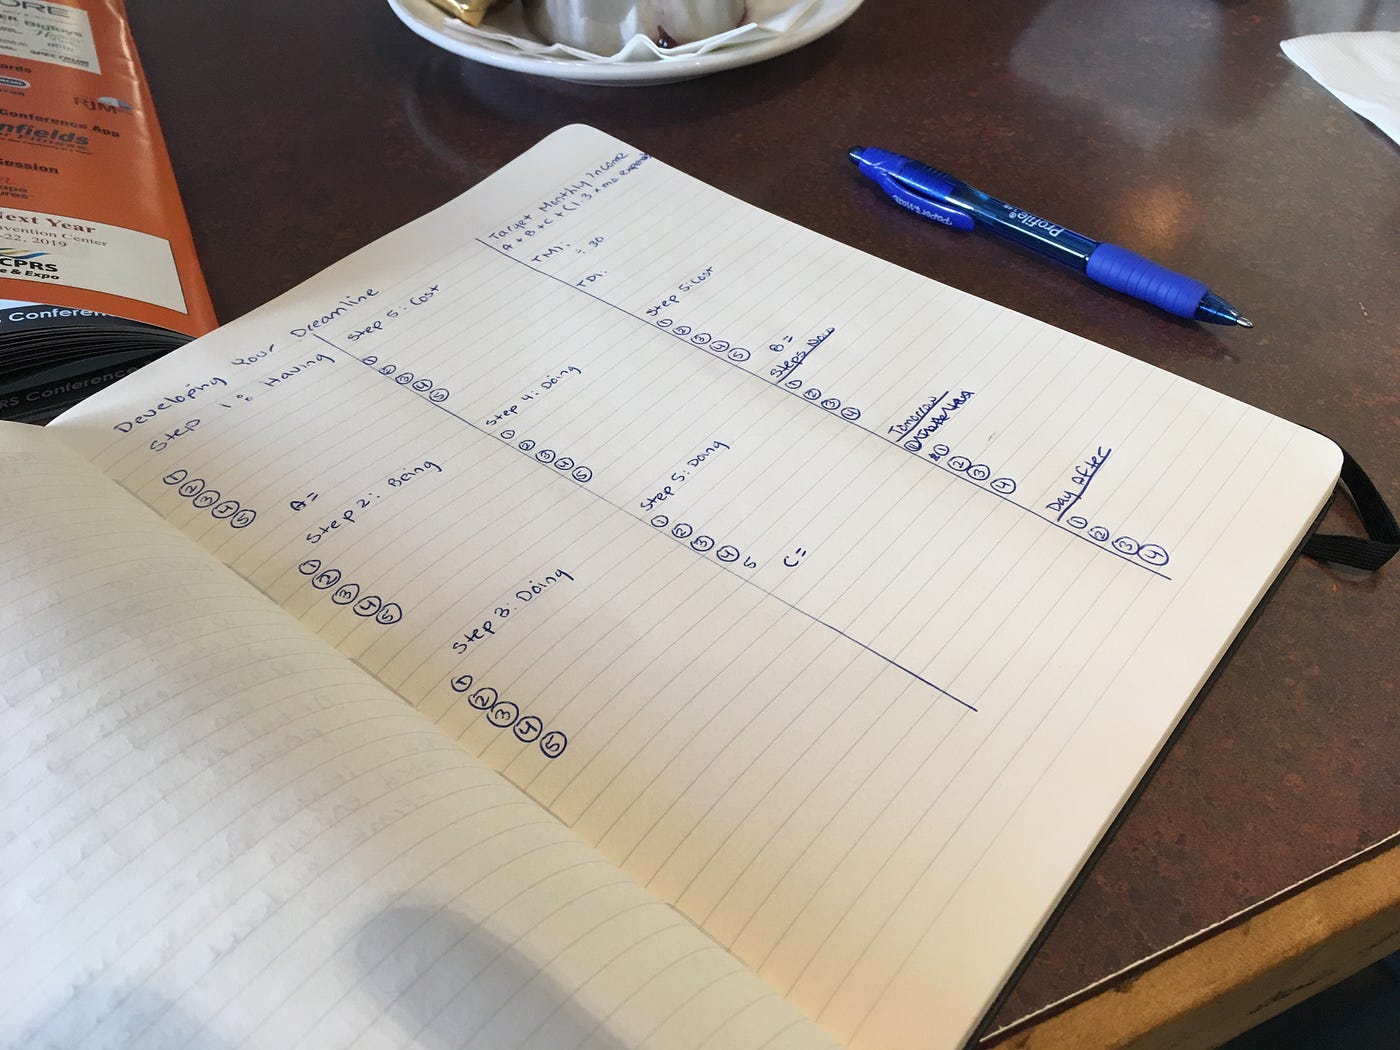 Developing Your Dreamline
Step 1: Having
1
2
3
4
5
A=
Step 2: Being
1
2
3
4
5
Step 3: Doing
1
2
3
4
5
Step 5: Cost
1
2
3
4
5
Step 4: Doing
1
2
3
4
5
Step 5: Doing
1
2
3
4
5
C=
Target Monthly Income
A+B+C+(1.3 x mo. expenses
TMI:
÷ 30
TDI:
Step 5: Cost
1
2
3
4
5
B=
Steps Now
1
2
3
4
Tomorrow
1
2
3
4
Day After
1
2
3
4
Profile
PaperMate
ORE
BigToys
SPECTRUM
ards
RJM
Conference App
nfields
Session
ape
ures
Next Year
vention Center
-22, 2019
CPRS
e & Expo
S Conferen
RS Conference